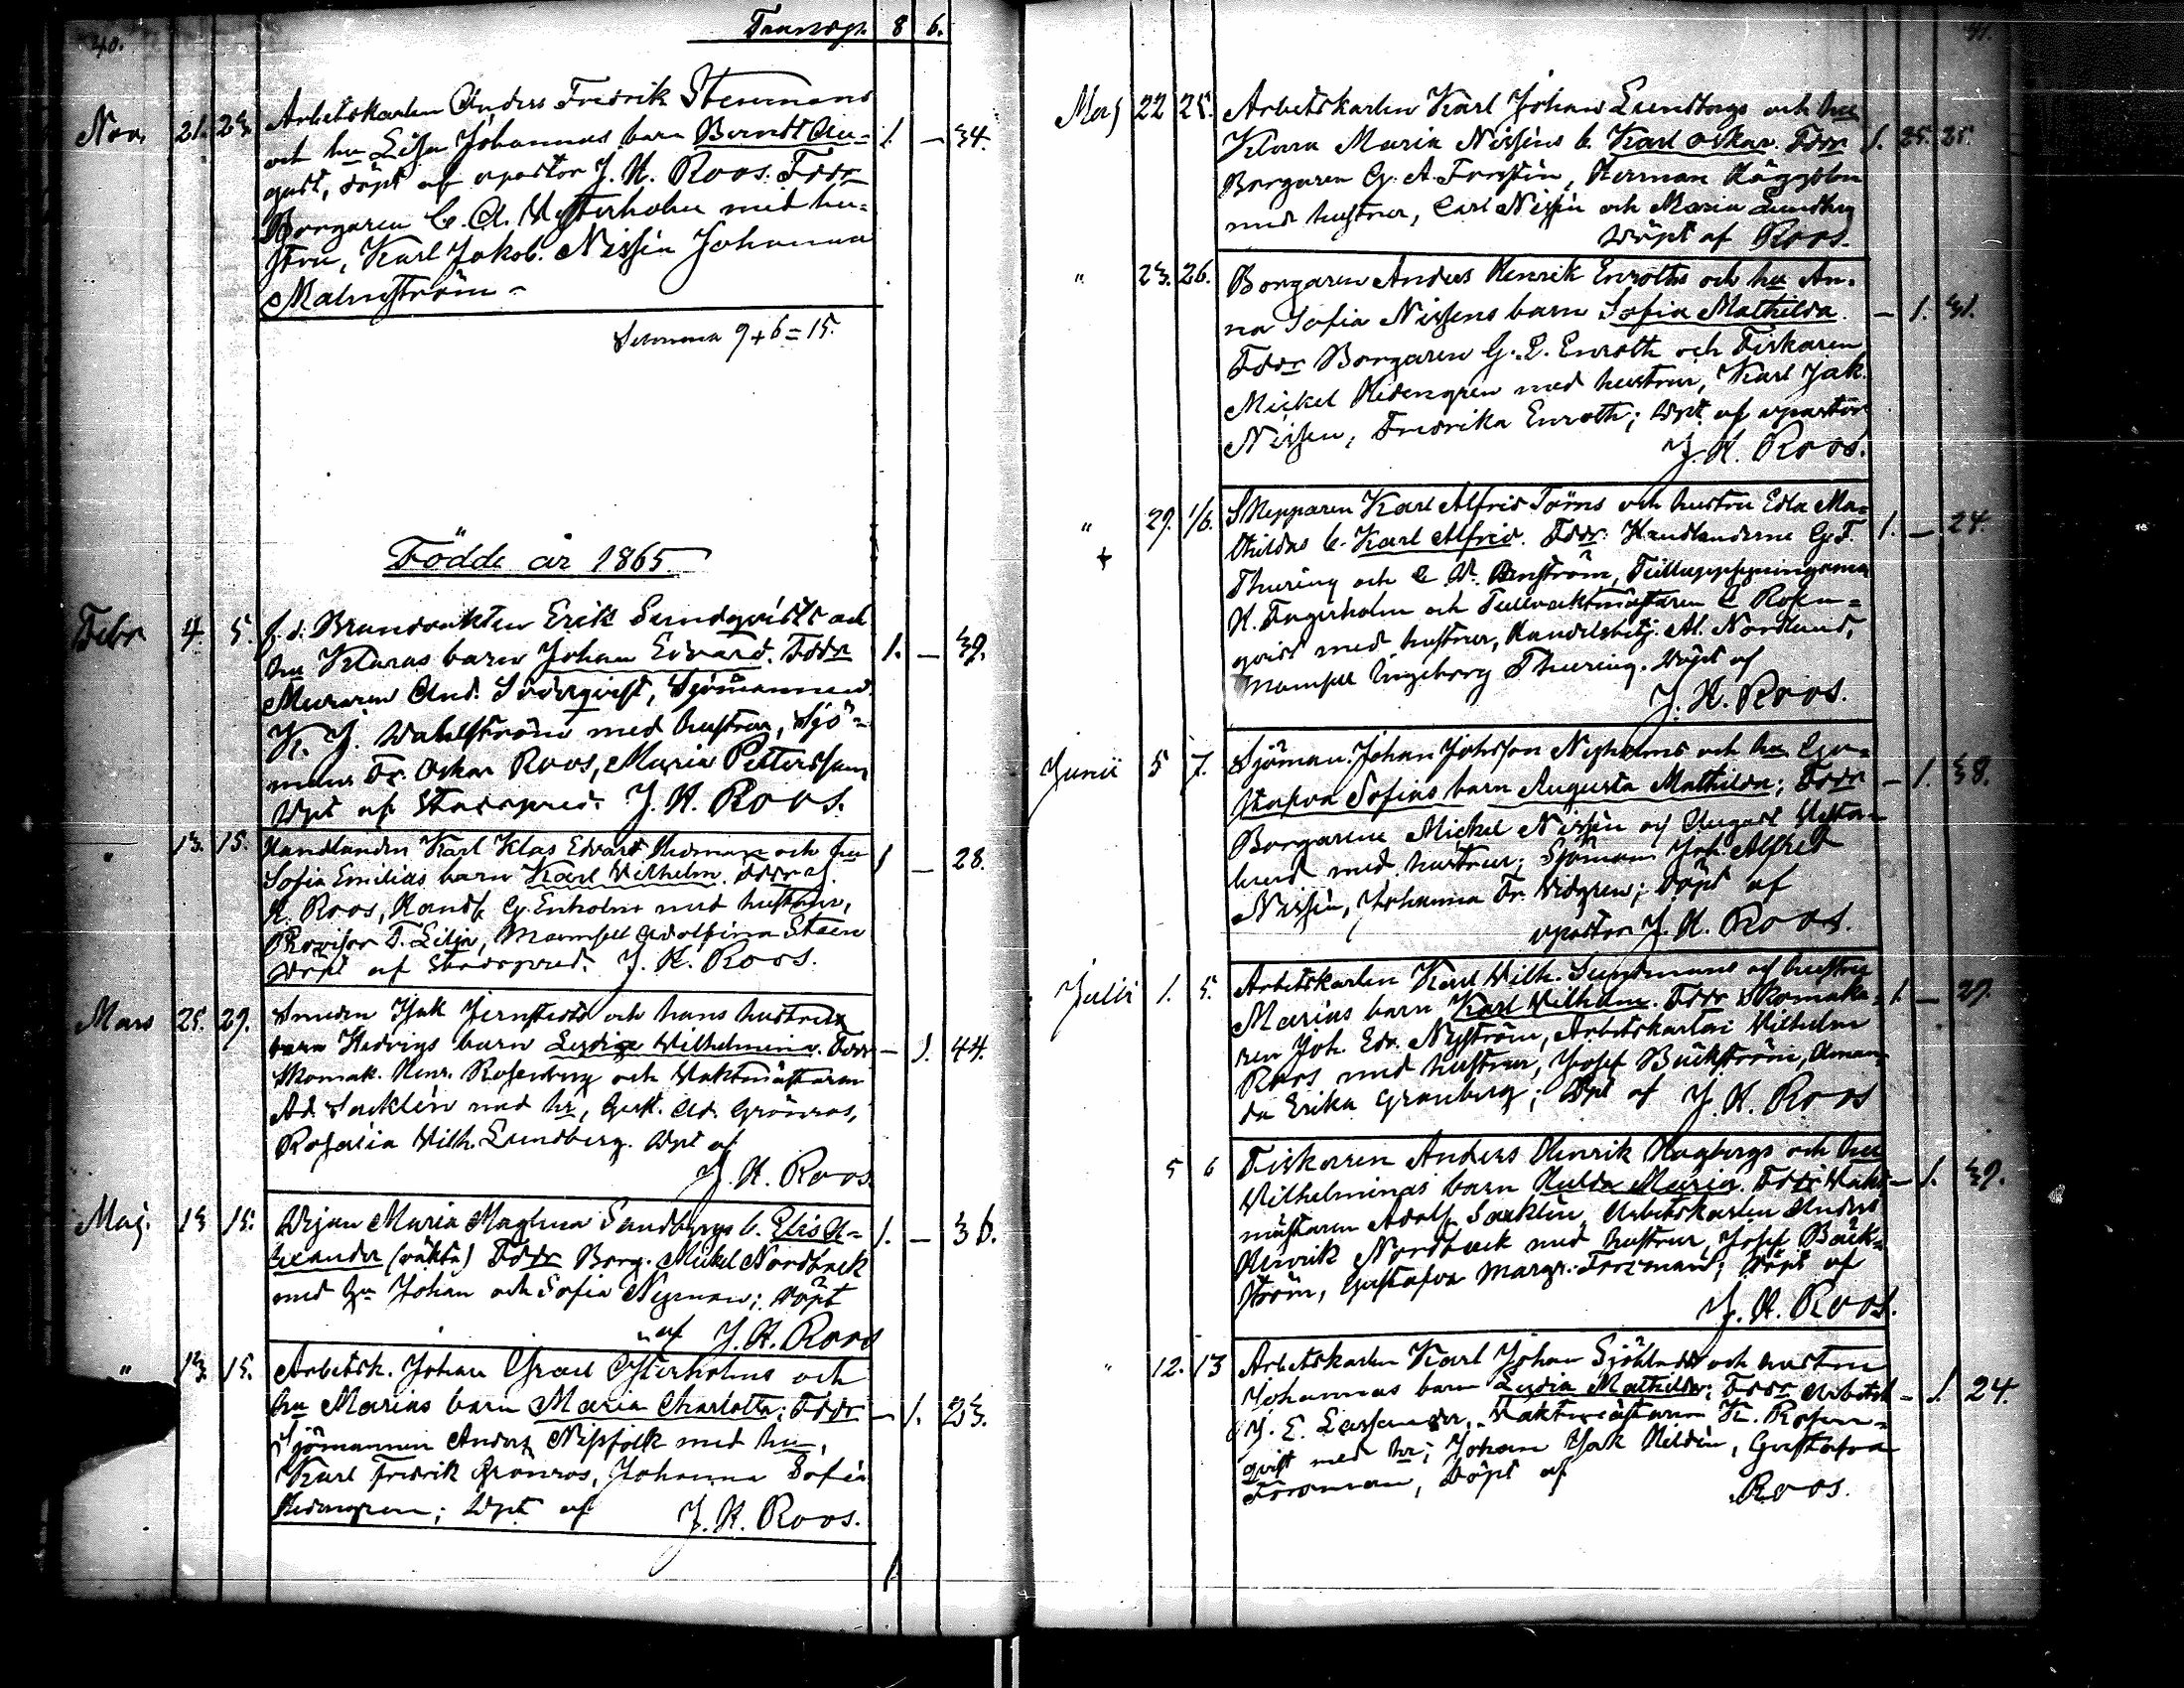 40.
Transp. 8 6.
Nov. 21. 23. Arbetskarlen Anders Fredrik Stenmans
och hu Lisa Johannas barn Berndt Au- 1. — 34.
gust, döpt af vpastor J. H. Roos. Fddr
Borgaren C. A. Westerholm med hu-
stru, Karl Jakob Nissén Johanna
Malmström -
Summa 9 + 6 = 15.
Födde år 1865.
Febr 4. 5. f. d. Brandvakten Erik Sundqvists och
hu Klaras barn Johan Edvard. Fddr 1. — 39.
Muraren And. Söderqvist, Sjömannen
K. J. Wahlström med hustrur, Sjö-
man Fr. Oskar Roos, Maria Pettersson
Döpt af Stadspred. J. H. Roos.
" 13. 15. Handlanden Karl Klas Edvard Hedman och hu
Sofia Emilias barn Karl Wilhelm. Fddr J. 1 — 28.
H. Roos, Handl. G. Enholm med hustrur,
Provisor T. Lilja, Mamsell Adolfina Steen
Döpt af Stadspred. J. H. Roos.
Mars 25. 29. Smeden Jak Jernstedts och hans hustrus
Hedvigs barn Lydia Wilhelmina. Fddr — 1. 44.
Skomak. Henr. Rosenberg och Vaktmästaren
Ad. Sacklén med hr, Gust. Ad. Grönroos,
Rosalia Wilh. Lundberg. Dpt af
J. H. Roos.
Maj. 13 15. Pigan Maria Maglena Sandbergs b. Elis A-
lexander (oäkta) Fddr Borg. Mickel Nordback 1. — 36.
med hu Johan och Sofia Nyman; Döpt
af J. H. Roos
" 13. 15. Arbetsk. Johan Israel Österholms och
hu Marias barn Maria Charlotta; Fddr — 1. 23.
Sjömannen Anders Nissfolk med hu,
Karl Fredrik Grönroos, Johanna Sofia
Hedengren; Dpt af J. H. Roos.
41.
Maj 22 25. Arbetskarlen Karl Johan Lundbergs och hu
Klara Maria Nisséns b. Karl Oskar. Fddr 1. 25. 25.
Borgaren G. A. Forstén, Herman Häggblom
med hustrur, Carl Nissén och Maria Lundberg
Döpt af Roos.
" 23. 26. Borgaren Anders Henrik Enroths och hu An-
na Sofia Nissens barn Sofia Mathilda. — 1. 31.
Fddr Borgaren G. E. Enroth och Fiskaren
Mickel Hedengren med hustrur, Karl Jak.
Nissen, Fredrika Enroth; Dpt af vpastor
J. H. Roos.
" 29. 1/6. Skepparen Karl Alfred Törns och hustru Edla Ma-
+ thildas b. Karl Alfrid. Fddr: Handlanderne G. F. 1. — 24.
Thuring och C. W. Enström, Tulluppsyningsman
H. Fagerholm och Tullvaktmästaren C Rosen-
qvist med hustrur, Handelsbitj. Al. Nordlund,
Mamsell Ingeborg Thuring. Döpt af
J. H. Roos.
Junii 5 7. Sjöman. Johan Johsson Nyholms och hu Gu-
stafva Sofias barn Augusta Mathilda; Fddr — 1. 38.
Borgarene Mickel Nissén och August Vester-
lund med hustrur; Sjöman Joh. Alfred
Nissén, Johanna Fr. Vidgren; Döpt af
vpastor J. H. Roos.
Julii 1. 5. Arbetskarlen Karl Wilh. Sundmans och hustru
Marias barn Karl Wilhelm. Fddr Skomaka- 1. — 29.
ren Joh. Edv. Nyström, Arbetskarlen Vilhelm
Roos med hustrur, Josef Bäckström, Aman-
da Erika Granberg; Dpt af J. H. Roos
5 6 Fiskaren Anders Henrik Hagbergs och hu
Wilhelminas barn Hulda Maria. Fddr Vakt- — 1. 39.
mästaren Adolf Sacklén, Arbetskarlen Anders
Henrik Nordback med hustrur, Josef Bäck-
ström, Gustafva Margr. Forsman; Döpt af
J. H. Roos.
" 12. 13 Arbetskarlen Karl Johan Sjöblads och hustru
Johannas barn Lydia Mathilda; Fddr Arbetsk — 1. 24.
J. E. Lassander, Vaktmästaren K. Rosen-
qvist med hr; Johan Jak Heldén, Gustafva
Forsman, Döpt af Roos.